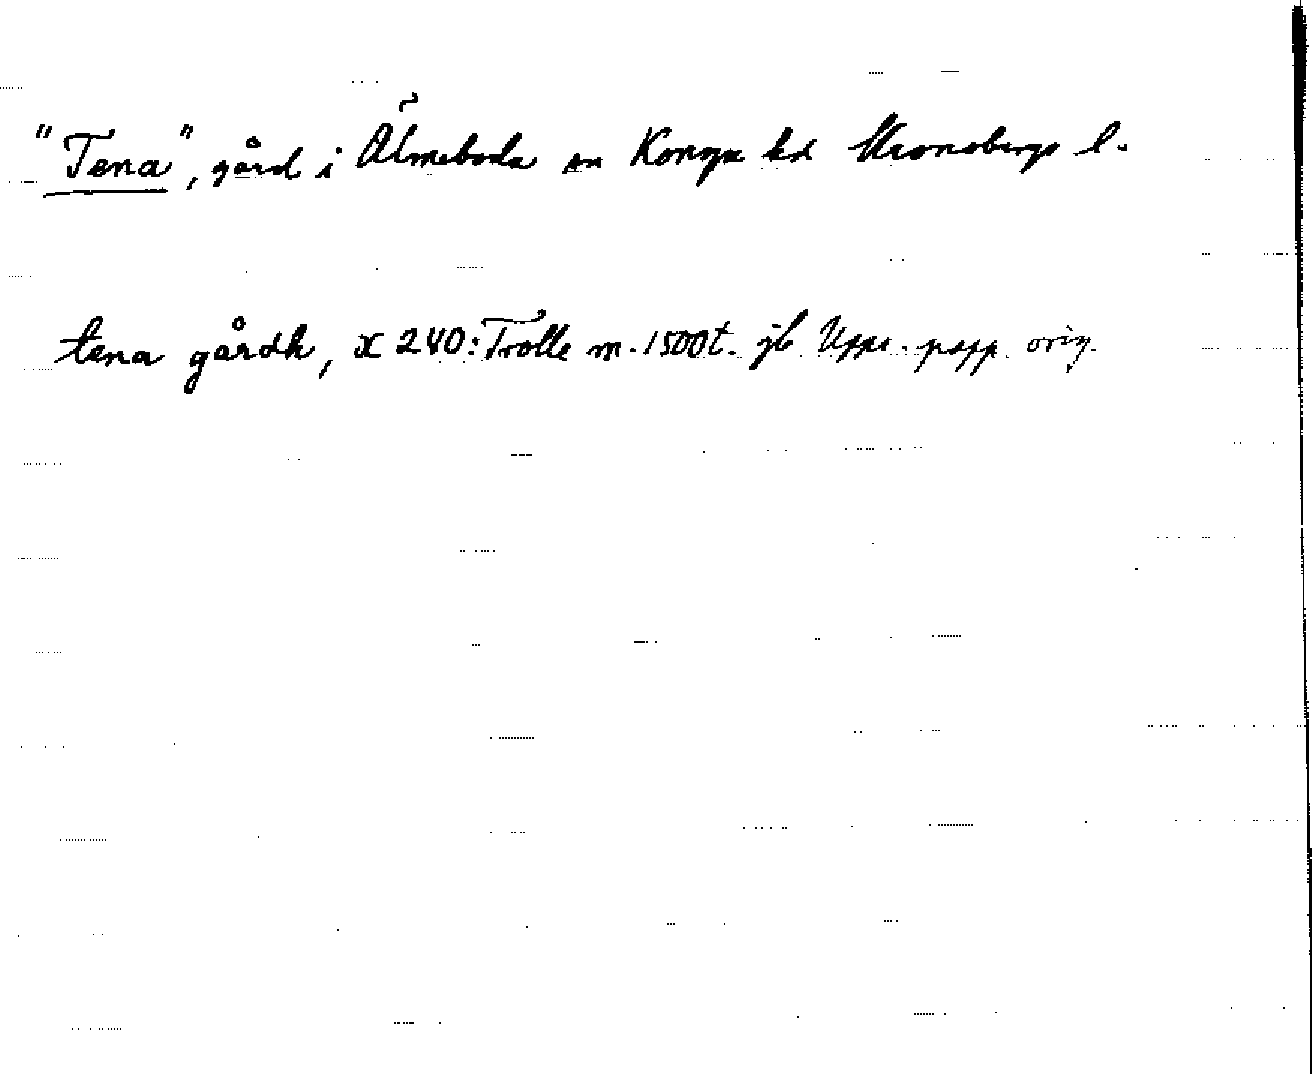 "Tena", gård i Älmeboda sn Konga hd Kronobergs l.
tena gårdh, x 240: Trolle m. 1500t. jb Upps. papp. orig.